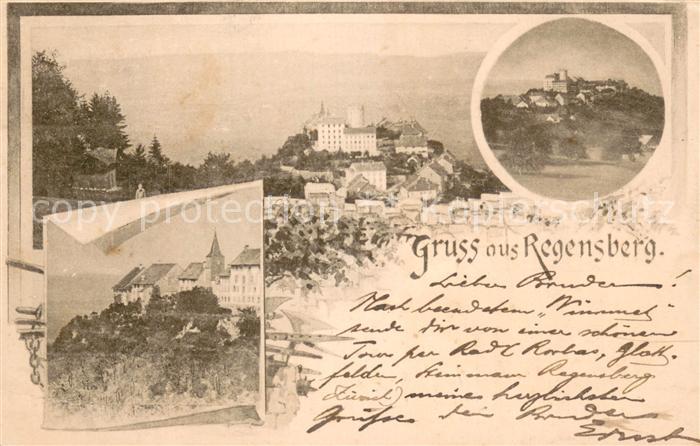 copy protection Kopierschutz
Gruss aus Regensberg.
Lieber Bruder!
Nach beendetem „Wimmet"
sende dir von einer schönen
Tour per Rad (Rorbas, Glatt-
felden, Steinmaur Regensberg
Zürich) meines herzlichsten
Grüsse dein Bruder
Ernst